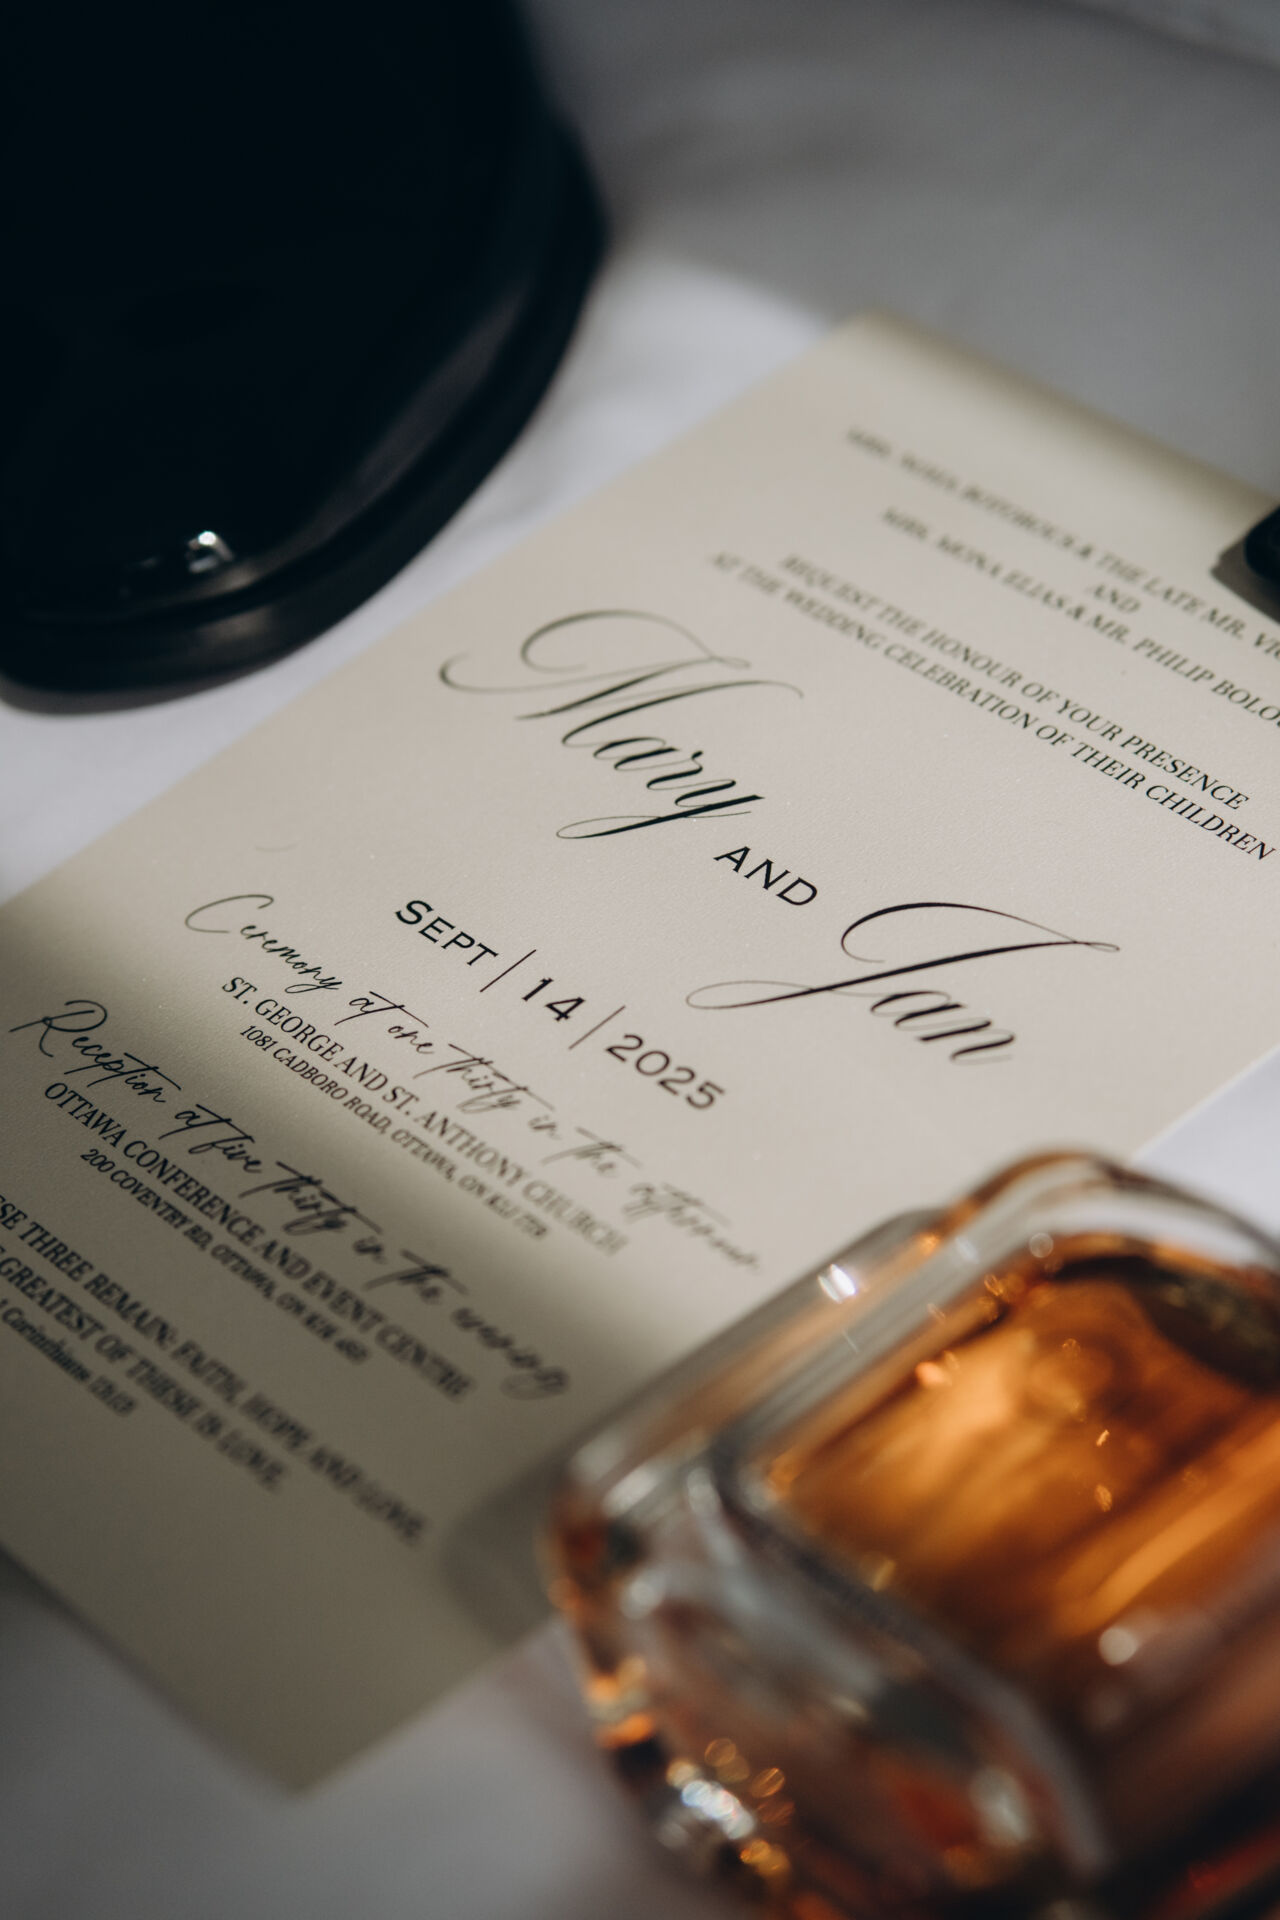 MRS. & THE LATE MR.
AND
MRS. MONA ELIAS & MR. PHILIP
REQUEST THE HONOUR OF YOUR PRESENCE
AT THE WEDDING CELEBRATION OF THEIR CHILDREN
Mary
AND
Jan
SEPT | 14 | 2025
Ceremony at one thirty in the afternoon
ST. GEORGE AND ST. ANTHONY CHURCH
1081 CADBORO ROAD, OTTAWA, ON K1J 7T8
Reception at five thirty in the evening
OTTAWA CONFERENCE AND EVENT CENTRE
200 COVENTRY RD, OTTAWA, ON
THREE REMAIN: FAITH, HOPE AND LOVE.
GREATEST OF THESE IS LOVE.
1 Corinthians 13:13